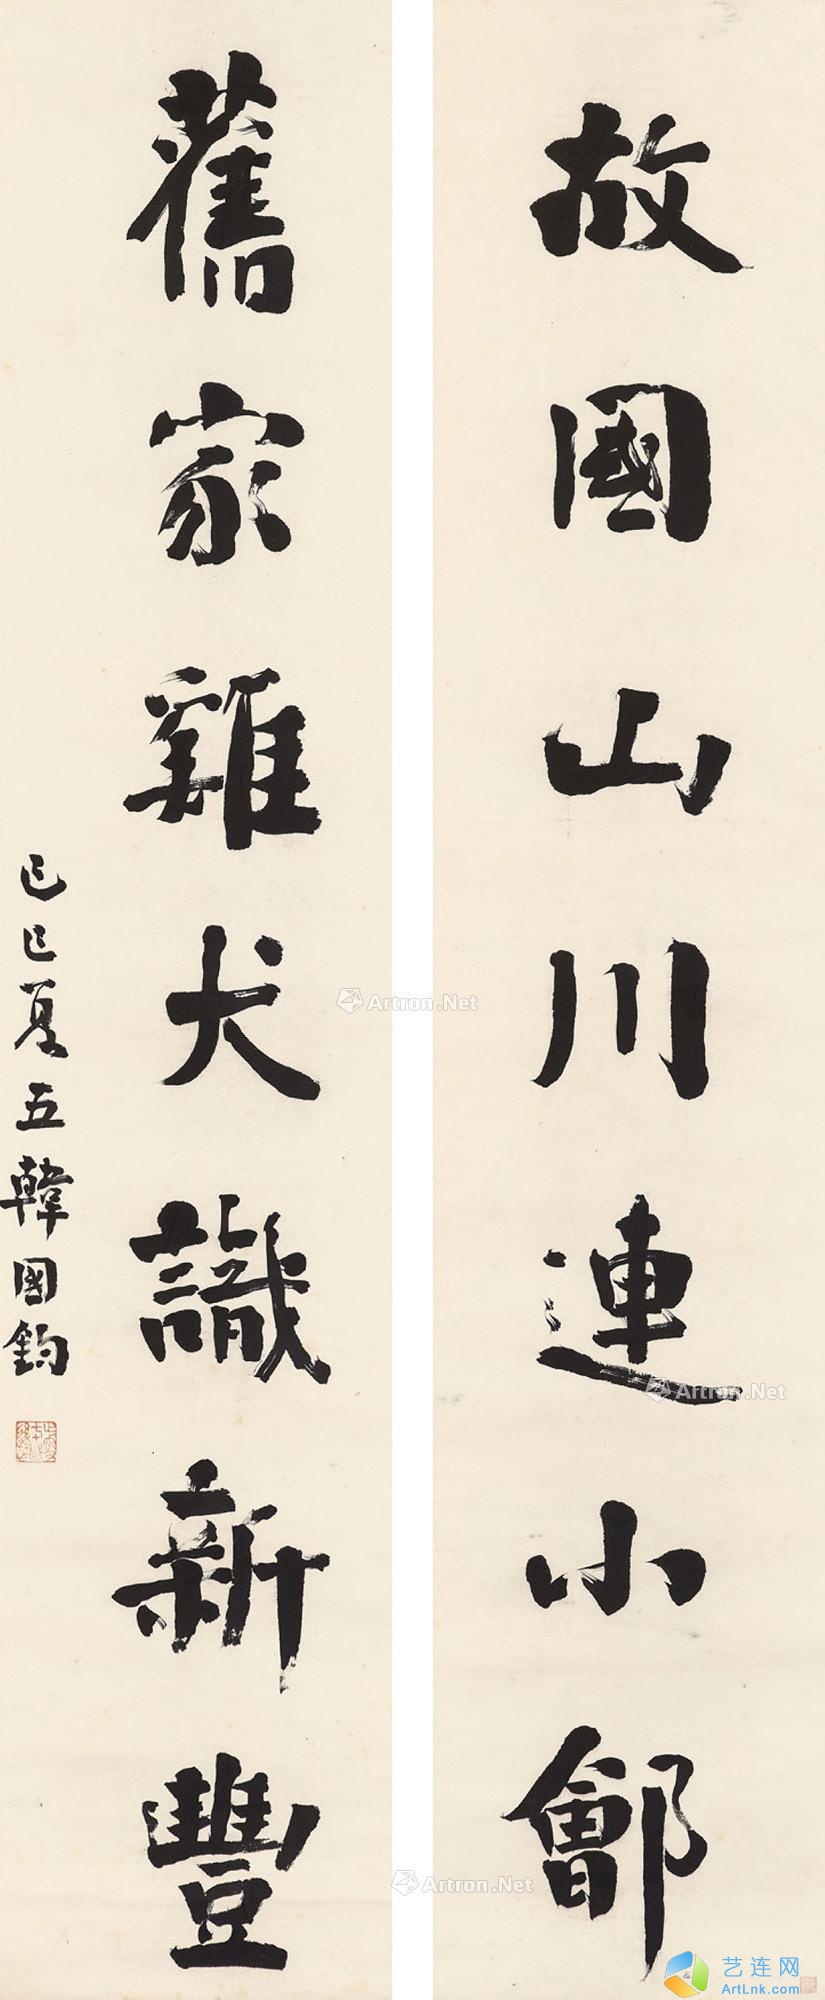 故國山川連小鄶
舊家雞犬識新豐
己巳夏五韓國鈞
Artron.Net
Artron.Net
Artron.Net
艺连网
ArtLnk.com